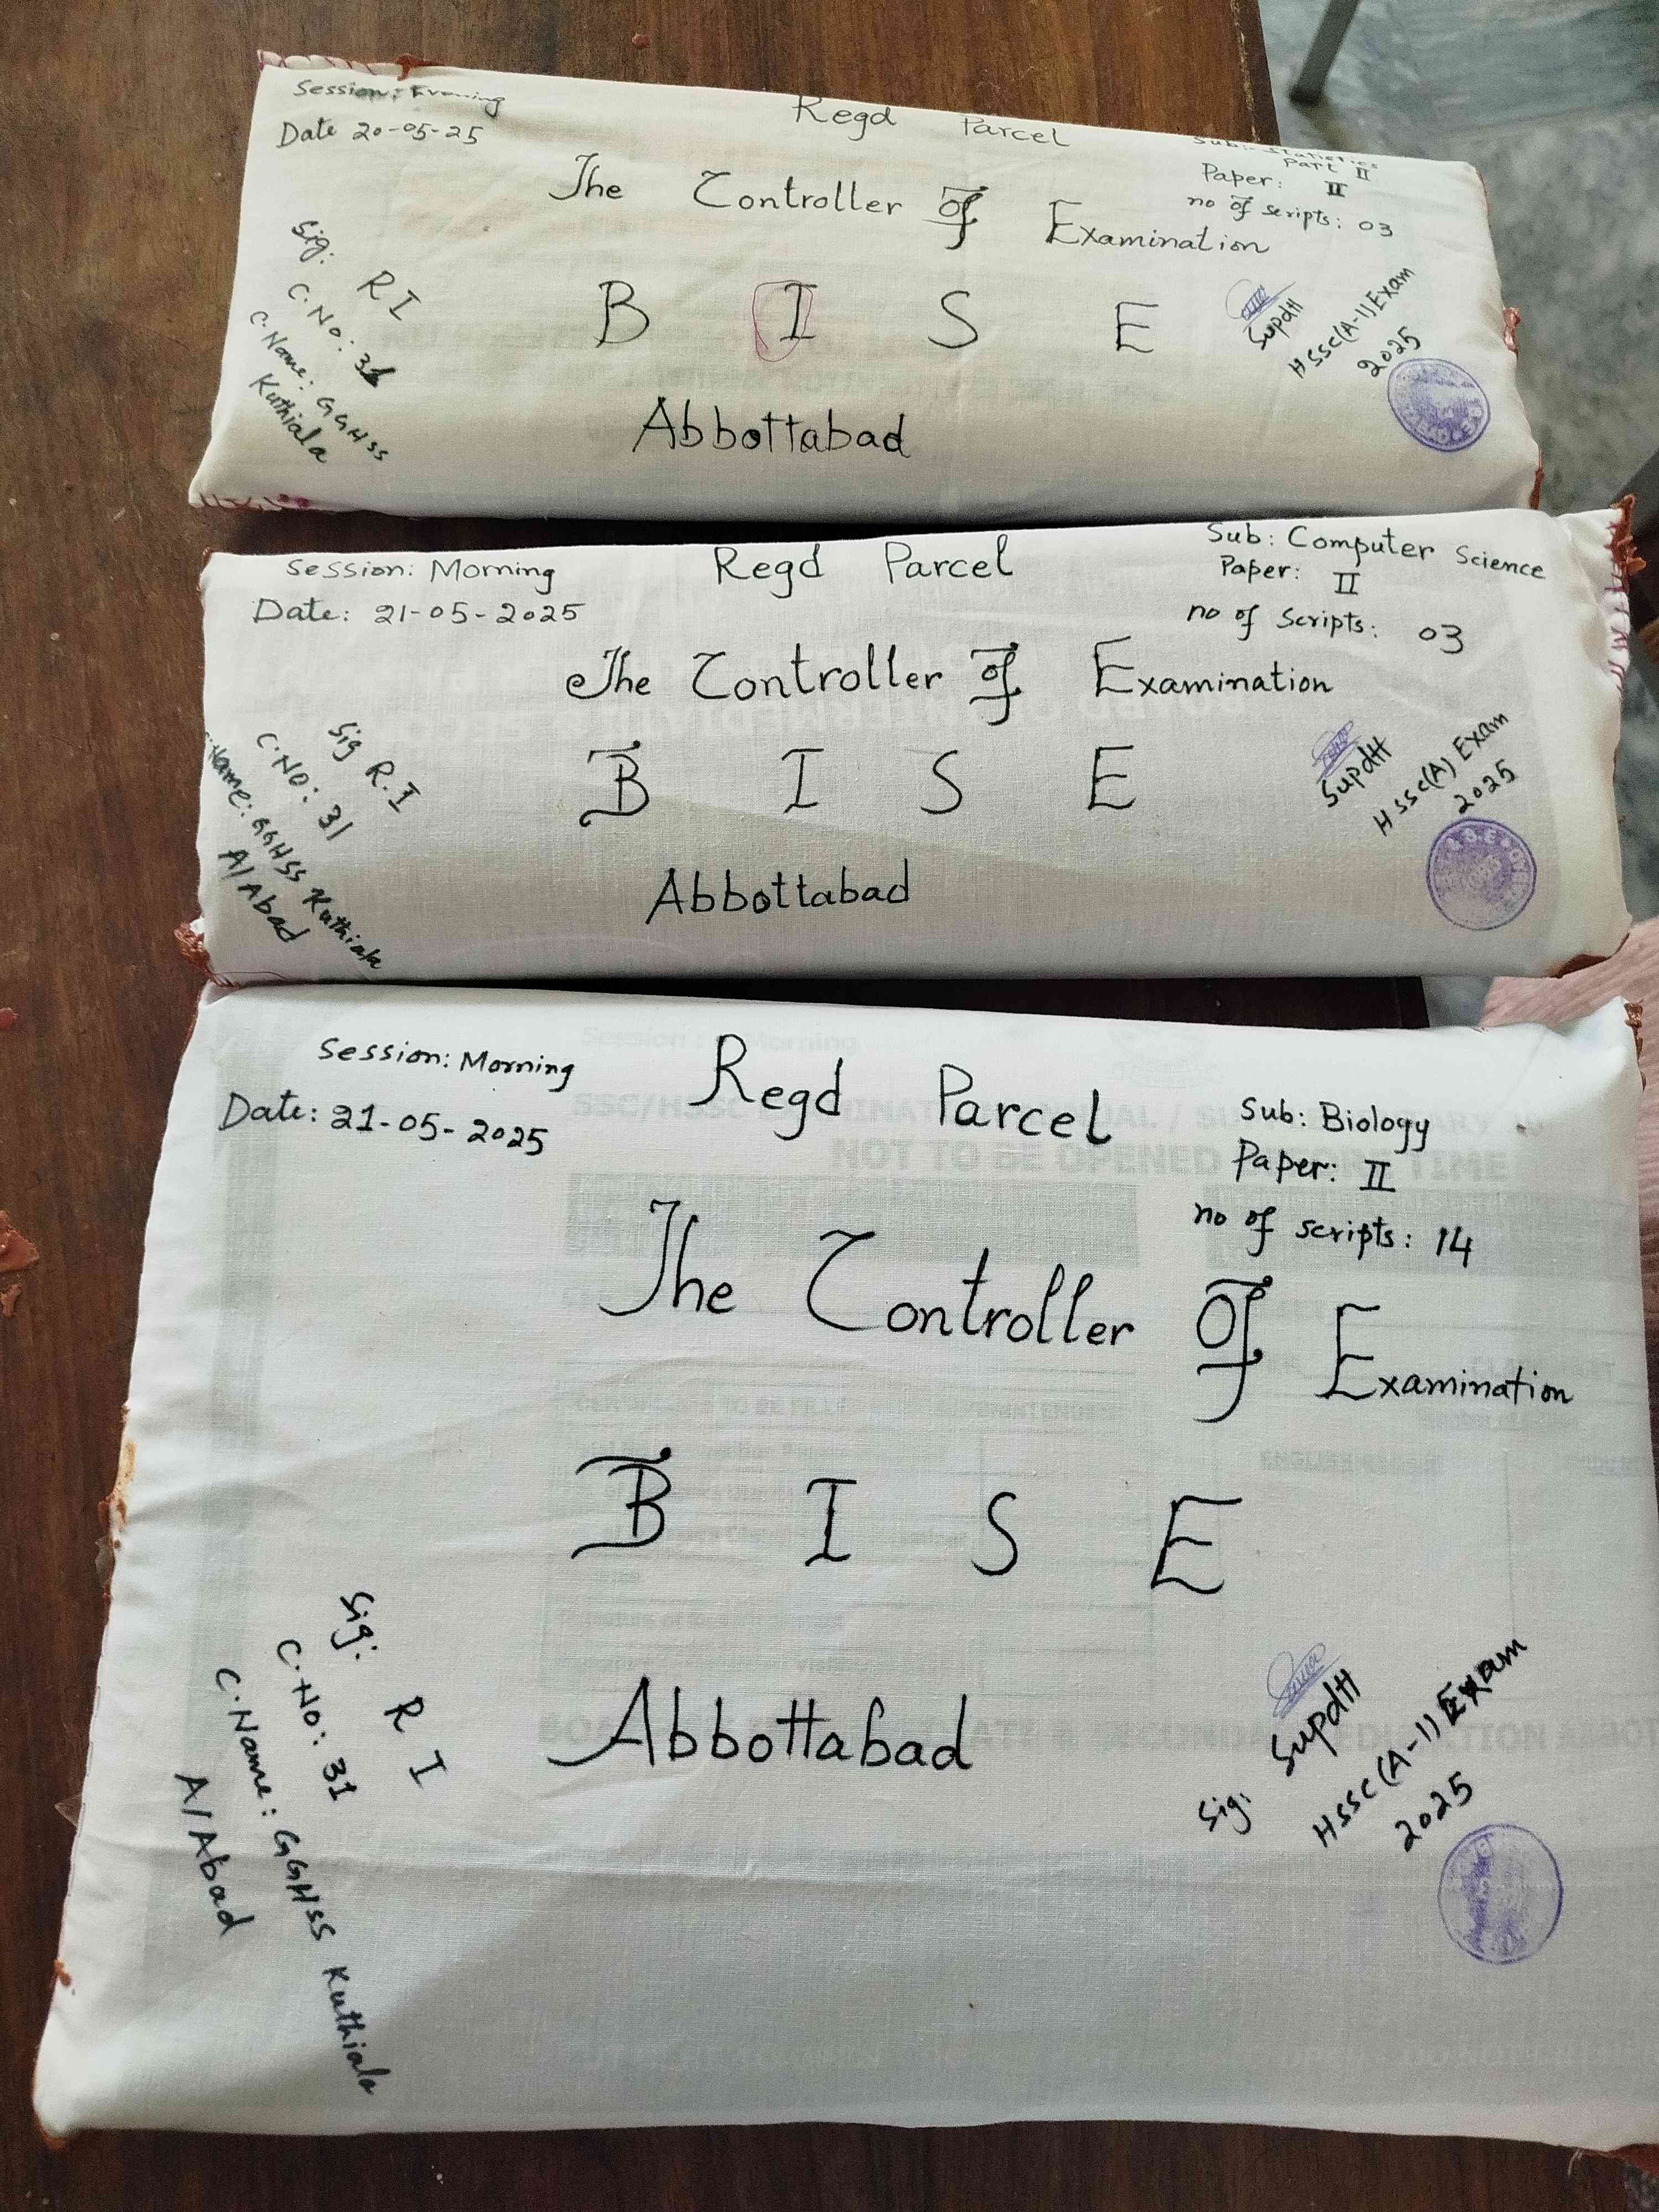 Session: Evening
Date 20-05-25
Regd Parcel
Sub: Statistics
Part II
Paper: II
no of scripts: 03
The Controller of Examination
B I S E
Abbottabad
Sig: R I
C.No: 31
C.Name: GGHSS
Kuthiala
Supdtt
HSSC(A-1) Exam
2025
Session: Morning
Date: 21-05-2025
Regd Parcel
Sub: Computer Science
Paper: II
no of Scripts: 03
The Controller of Examination
B I S E
Abbottabad
Sig R.I
C.NO: 31
Name: GGHSS Kuthiala
A/Abad
Supdtt
HSSC(A) Exam
2025
Session: Morning
Date: 21-05-2025
Regd Parcel
Sub: Biology
Paper: II
no of scripts: 14
The Controller Of Examination
B I S E
Abbottabad
Sig: R I
C.No: 31
C.Name: GGHSS Kuthiala
A/Abad
Sig: Supdtt
HSSC(A-1) Exam
2025
NOT TO BE OPENED